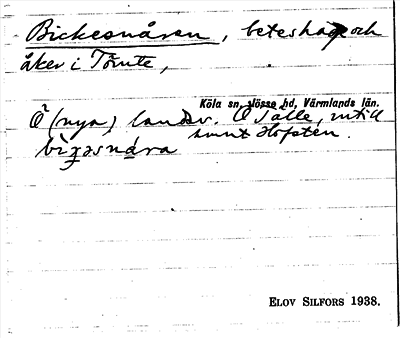 Bickesnåren, beteshage och
åker i Tömte,
Köla sn, Jösse hd, Värmlands län.
Ö (nya) landsv. Ö Sälle, intill
samt Hofsten.
ELOV SILFORS 1938.